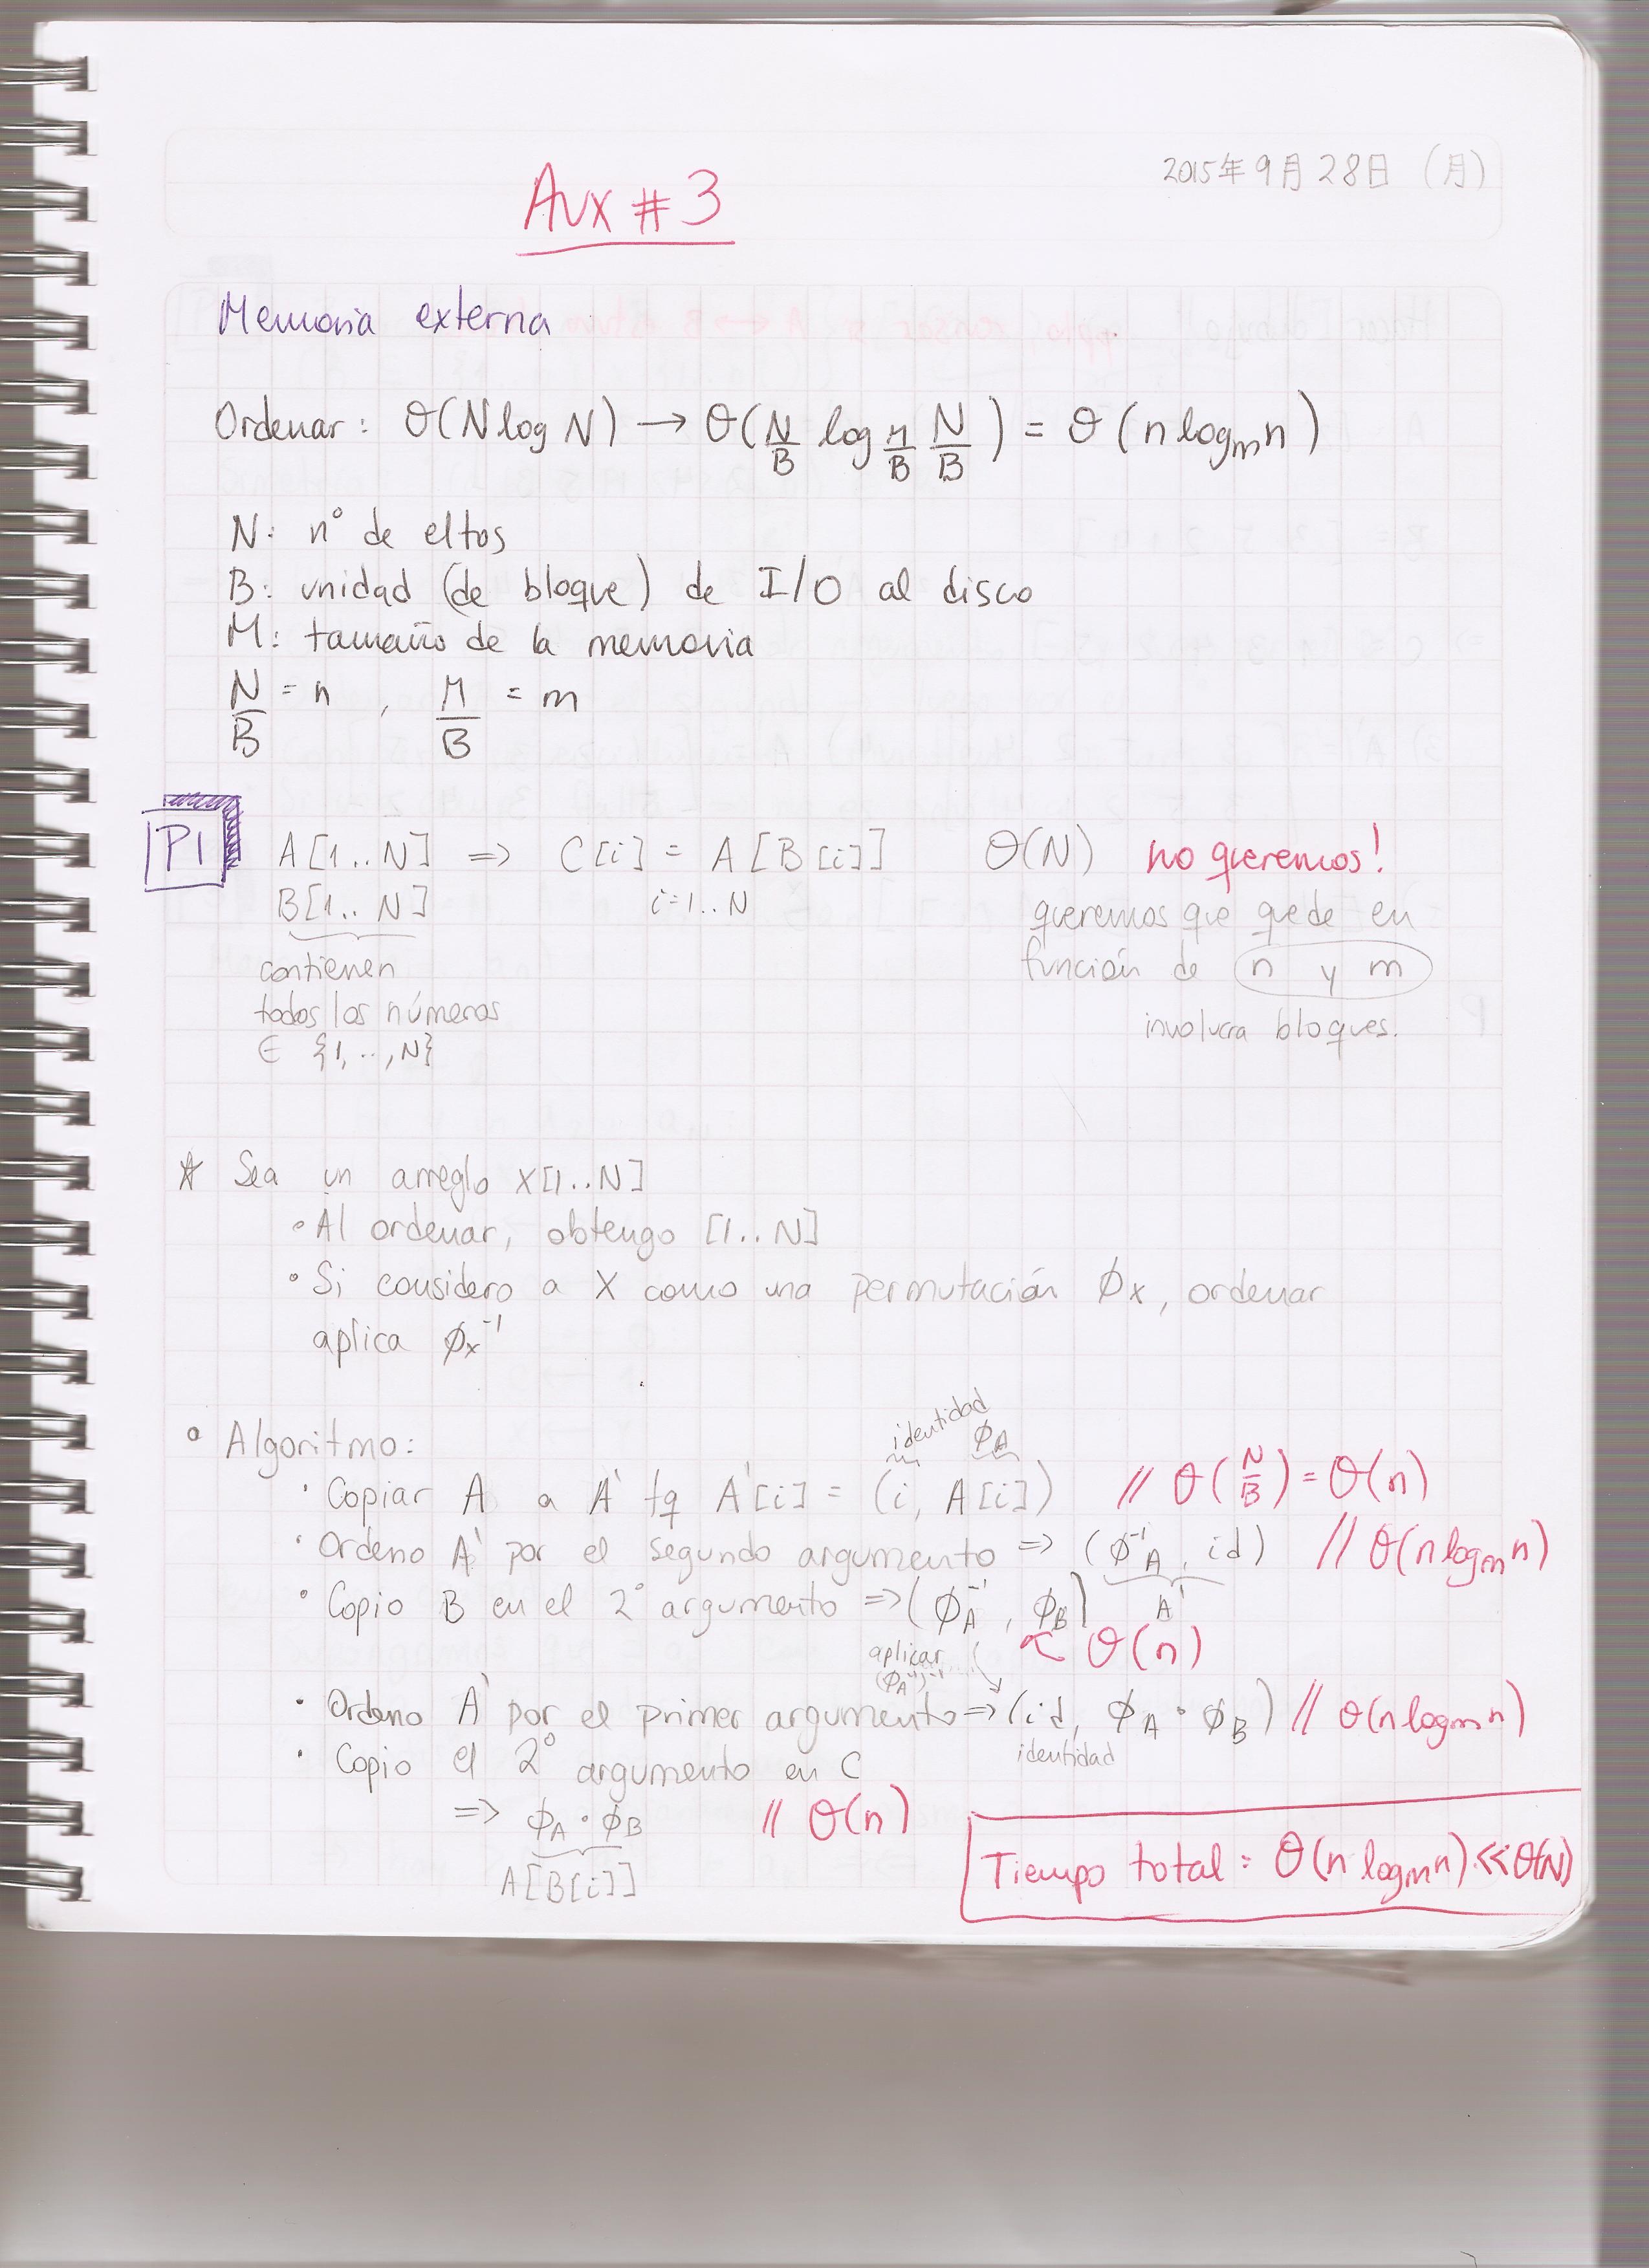 2015年9月28日 (月)
Aux #3
Memoria externa
Ordenar: Θ(N log N) → Θ(N/B log_{M/B} N/B) = Θ(n log_m n)
N: n° de eltos
B: unidad (de bloque) de I/O al disco
M: tamaño de la memoria
N/B = n , M/B = m
P1 A[1..N] => C[i] = A[B[i]] Θ(N) no queremos!
B[1..N] i=1..N queremos que quede en
contienen función de n y m
todos los números involucra bloques.
∈ {1,..,N}
* Sea un arreglo X[1..N]
• Al ordenar, obtengo [1..N]
• Si considero a X como una permutación φx, ordenar
aplica φx⁻¹
• Algoritmo:
identidad φA
• Copiar A a A' tq A'[i] = (i, A[i]) // Θ(N/B) = Θ(n)
• Ordeno A' por el segundo argumento => (φ⁻¹A, id) // Θ(n log_m n)
• Copio B en el 2° argumento => (φA⁻¹, φB) A'
aplicar (φA⁻¹)⁻¹ Θ(n)
• Ordeno A' por el primer argumento => (id, φA · φB) // Θ(n log_m n)
identidad
• Copio el 2° argumento en C
=> φA · φB // Θ(n)
A[B[i]]
Tiempo total = Θ(n log_m n) << Θ(N)